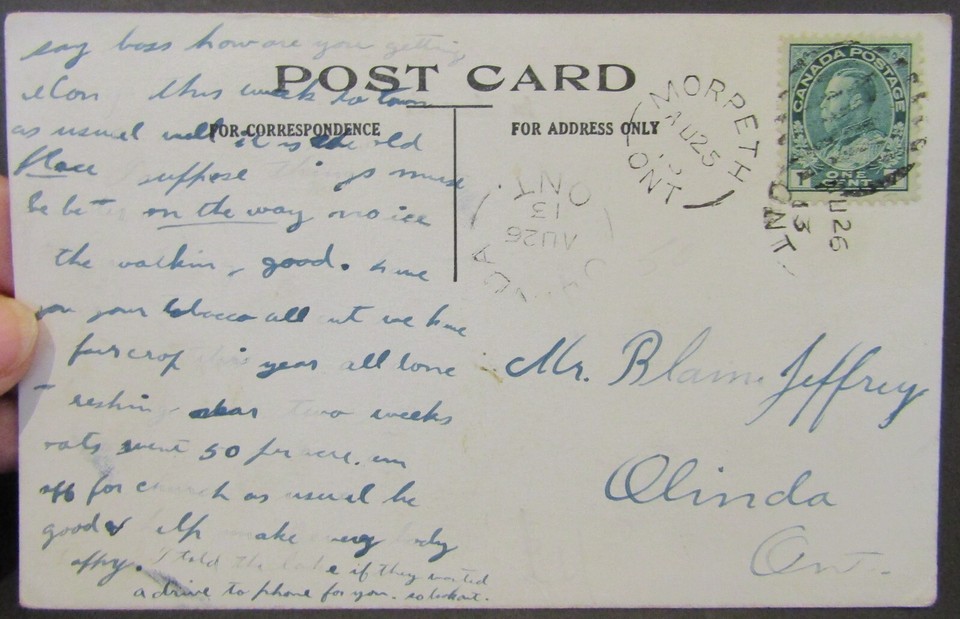 say boss how are you getting
alon this week to town
as usual well it is the old
place suppose things must
be better on the way no ice
the walkin good. have
you your tobacco all cut we have
fair crop this year all done
two weeks
oats went 50 per acre. am
off for church as usual be
good help make every body
happy. I told the if they wanted
a drive to phone for you. so lookout.
POST CARD
FOR CORRESPONDENCE
FOR ADDRESS ONLY
MORPETH
AU 25
13
ONT
AU 26
13
ONT
CANADA POSTAGE
1
ONE
CENT
AU 26
13
ONT
Mr. Blame Jeffrey
Olinda
Ont.